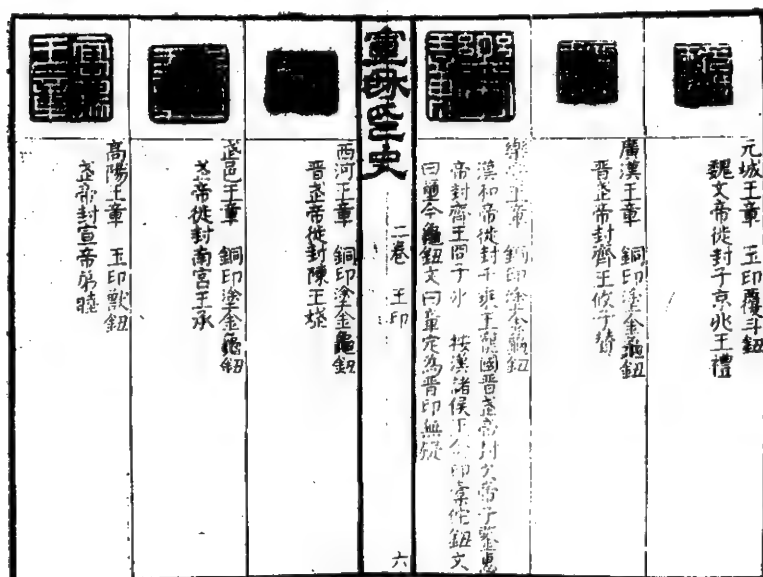 元城王章 玉印覆斗鈕
魏文帝徙封子京兆王禮
廣漢王章 銅印塗金龜鈕
晉武帝封齊王攸子贊
樂安王章 銅印塗金龜鈕
漢和帝徙封千乘王寵國晉武帝封文帝子鑒惠
帝封齊王冏子冰 按漢諸侯王金印橐佗鈕文
曰璽今龜鈕文曰章定為晉印無疑
宣龢印史 二卷 王印 六
西河王章 銅印塗金龜鈕
晉武帝徙封陳王
武邑王章 銅印塗金龜鈕
武帝徙封南宮王承
高陽王章 玉印獸鈕
武帝封宣帝弟睦